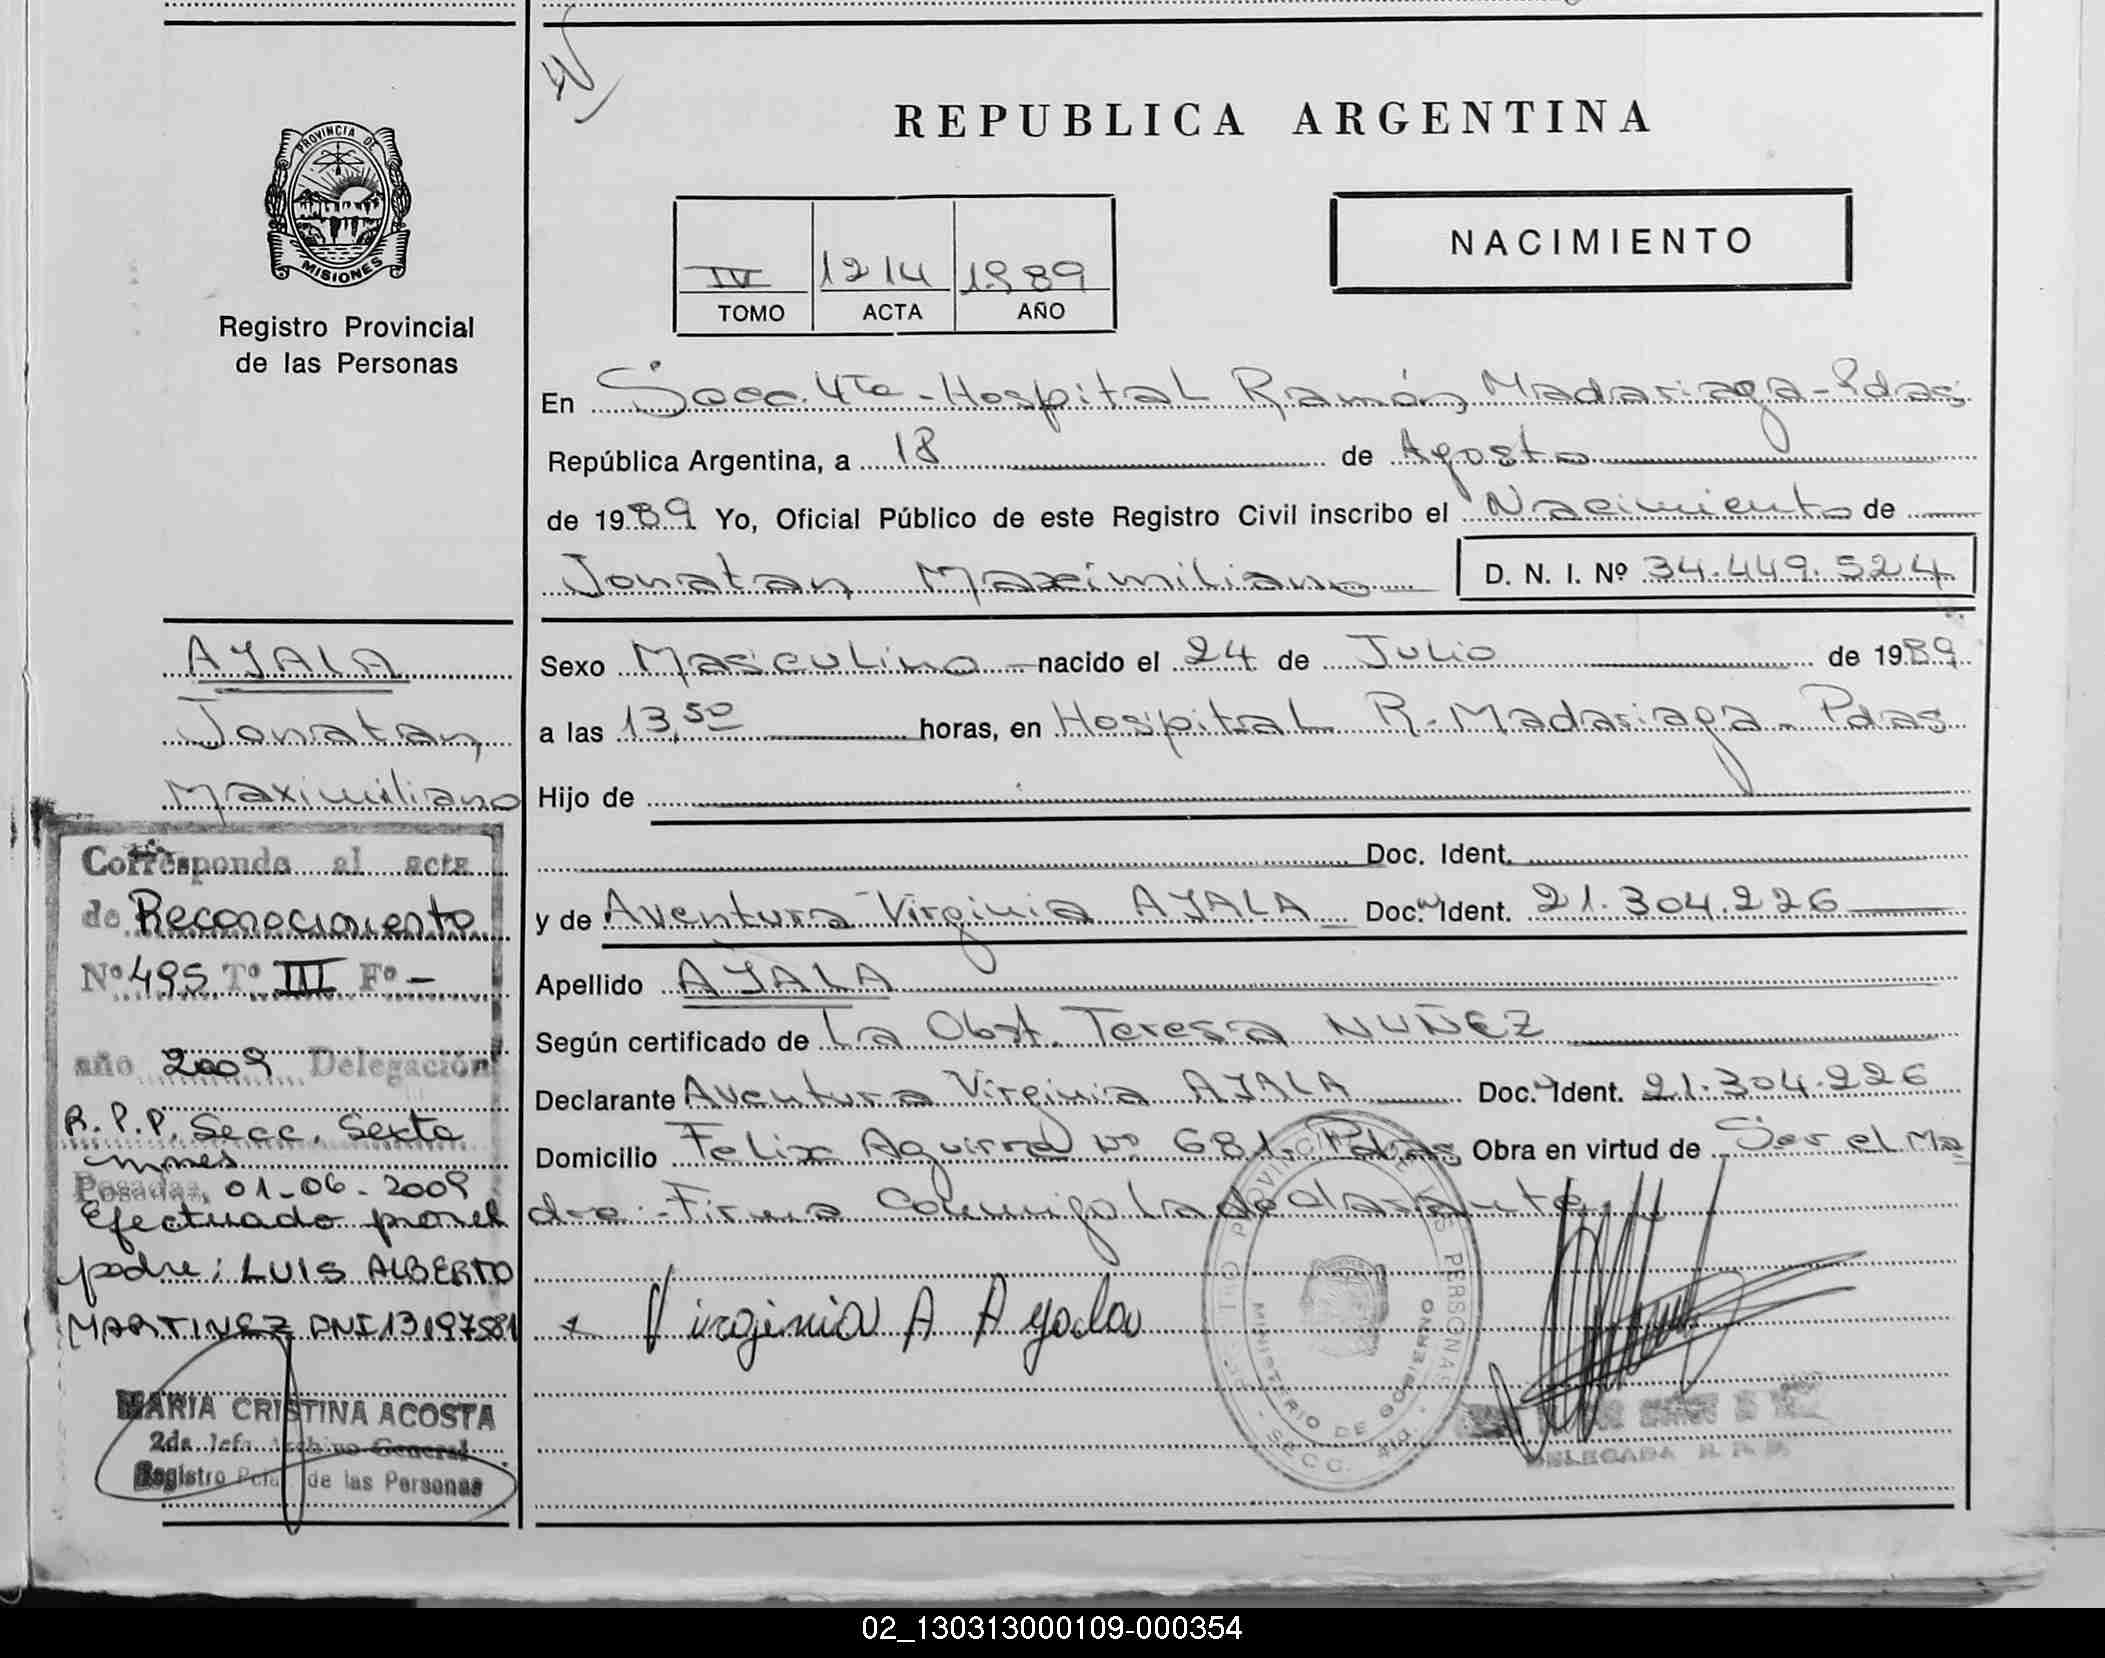 REPUBLICA ARGENTINA
PROVINCIA DE
MISIONES
Registro Provincial
de las Personas
IV 1214 1989
TOMO ACTA AÑO
NACIMIENTO
En Secc. 4ta - Hospital Ramón Madariaga - Pdas
República Argentina, a 18 de Agosto
de 1989 Yo, Oficial Público de este Registro Civil inscribo el Nacimiento de
Jonatan Maximiliano D. N. I. Nº 34.449.524
AYALA
Jonatan
Maximiliano
Sexo Masculino nacido el 24 de Julio de 1989
a las 13,50 horas, en Hospital R. Madariaga - Pdas
Hijo de
Doc. Ident.
y de Aventura Virginia AYALA Doc. Ident. 21.304.226
Apellido AYALA
Según certificado de La Obst. Teresa NUÑEZ
Declarante Aventura Virginia AYALA Doc. Ident. 21.304.226
Domicilio Felix Aguirre nº 681 - Pdas Obra en virtud de Ser el Ma
dre - Firma Conmigo la declarante
Virginia A Ayala
REGISTRO PROVINCIAL DE LAS PERSONAS
MINISTERIO DE GOBIERNO
SECC. 4ta
DELEGADA R. P. P.
Corresponde al acta
de Reconocimiento
Nº 495 Tº III Fº -
año 2009 Delegación
R. P. P. Secc. Sexta
mnes
Posadas, 01-06-2009
Efectuado por el
padre: LUIS ALBERTO
MARTINEZ DNI 13197581
MARIA CRISTINA ACOSTA
2da. Jefa Archivo General
Registro Pcial de las Personas
02_130313000109-000354